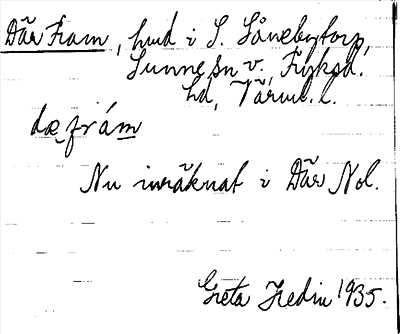 Där Fram, hmd i S. Lånebytorp,
Sunne sn v., Fryksd.
hd, Värml. l.
dæ̣ frám
Nu inräknat i Där Nol.
Greta Hedin 1935.